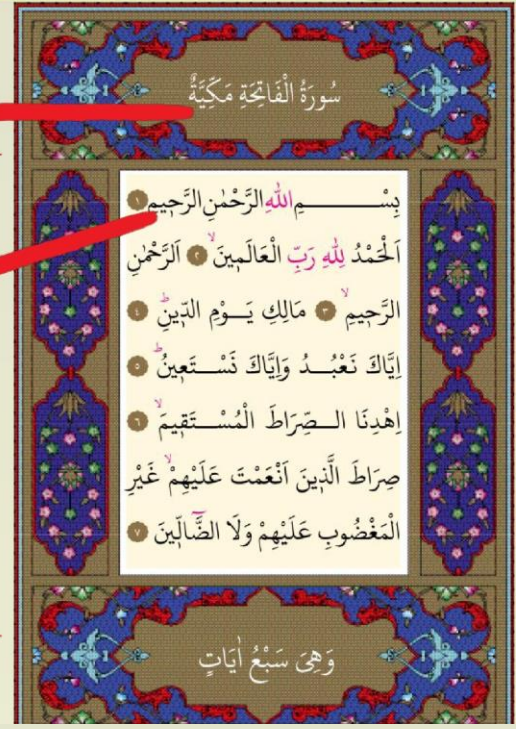 سُورَةُ الْفَاتِحَةِ مَكِّيَّةٌ
بِسْمِ اللهِ الرَّحْمٰنِ الرَّحٖيمِ ١
اَلْحَمْدُ لِلّٰهِ رَبِّ الْعَالَمٖينَۙ ٢ اَلرَّحْمٰنِ
الرَّحٖيمِۙ ٣ مَالِكِ يَوْمِ الدّٖينِؕ ٤
اِيَّاكَ نَعْبُدُ وَاِيَّاكَ نَسْتَعٖينُؕ ٥
اِهْدِنَا الصِّرَاطَ الْمُسْتَقٖيمَۙ ٦
صِرَاطَ الَّذٖينَ اَنْعَمْتَ عَلَيْهِمْۙ غَيْرِ
الْمَغْضُوبِ عَلَيْهِمْ وَلَا الضَّٓالّٖينَ ٧
وَهِىَ سَبْعُ اٰيَاتٍ